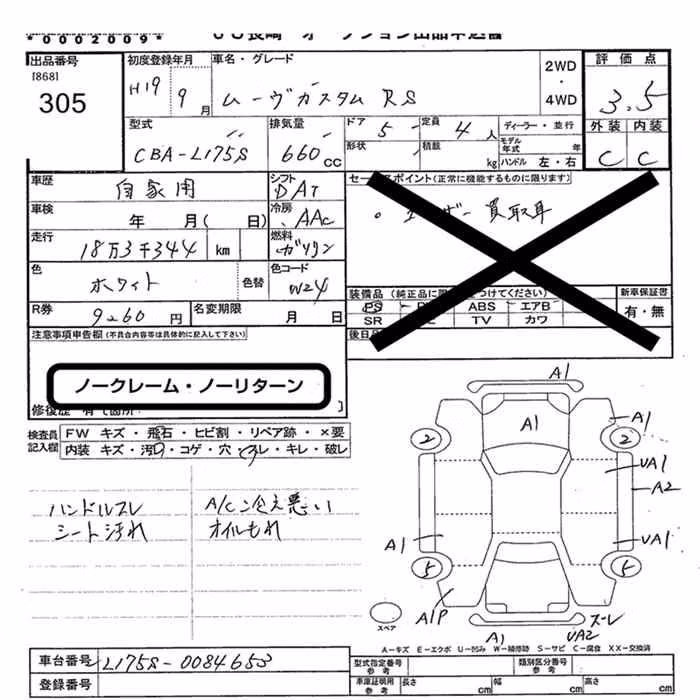 *0002009*
ＪＵ長崎 オークション出品申込書
出品番号
[868]
305
初度登録年月
H19 9月
車名・グレード
ムーヴカスタム RS
2WD
・
4WD
評価点
3.5
外装 内装
C C
型式
CBA-L175S
排気量
660 cc
ドア 5
定員 4人
形状
積載 kg
ディーラー・並行
モデル年式 年
ハンドル 左・右
車歴
自家用
シフト
DAT
車検
年 月( 日)
冷房
AAC
走行
18万3千344 km
燃料
ガソリン
色
ホワイト
色替
色コード
W24
R券
9260円
名変期限
月 日
セールスポイント(正常に機能するものに限ります)
・ユーザー買取車
装備品
新車保証書
有・無
PS
ABS
エアB
SR
TV
カワ
注意事項申告欄(不具合内容等は具体的に記入して下さい)
ノークレーム・ノーリターン
検査員記入欄
FW キズ・飛石・ヒビ割・リペア跡・×要
内装 キズ・汚れ・コゲ・穴・スレ・キレ・破レ
ハンドルスレ
シート汚れ
A/C冷え悪い
オイルもれ
A1
A1
A1
2
2
UA1
A2
A1
UA1
5
5
A1P
スペア
A1
UA2
ズーレ
A-キズ E-エクボ U-凹み W-補修跡 S-サビ C-腐食 XX-交換済
車台番号
L175S-0084653
登録番号
型式指定番号
参考
類別区分番号
参考
車庫証明用
参考
長さ cm
幅 cm
高さ cm